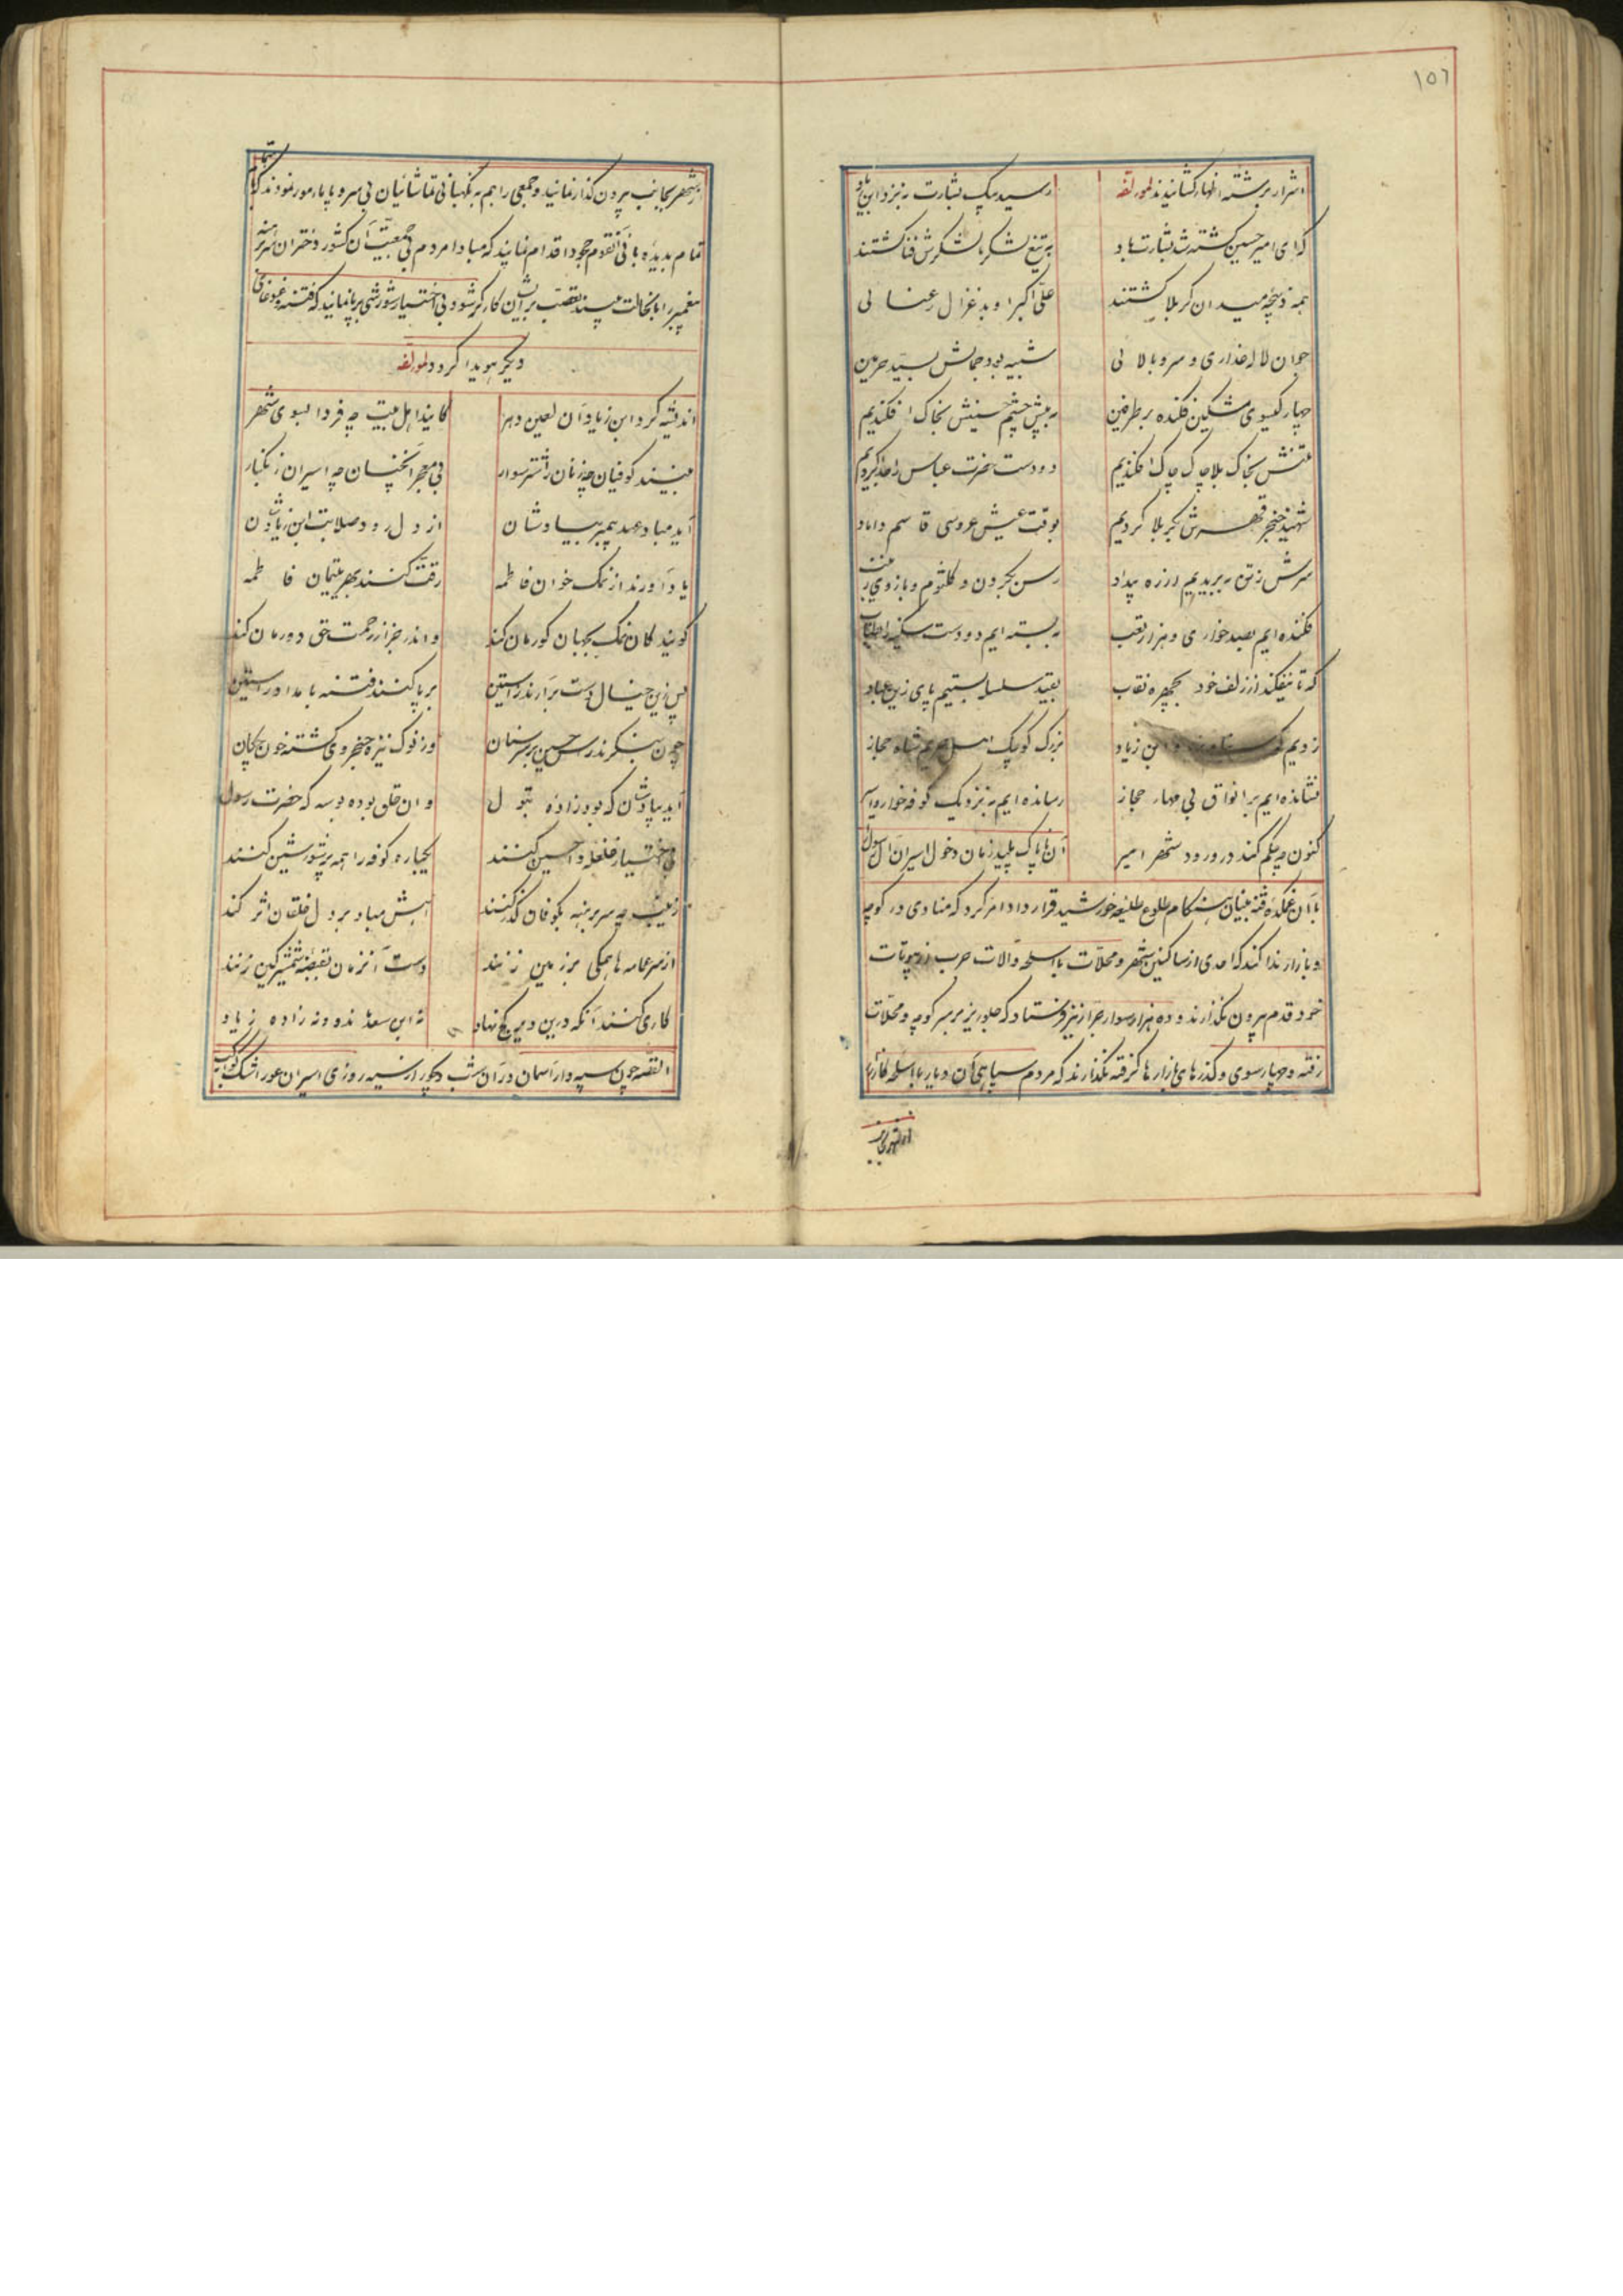 ١٥٦
اشرار برشته اظهار کشانیدند لمولفه
رسید پیک بشارت به نزد ابن زیاد
که ای امیر حسین کشته شد بشارت باد
به تیغ لشکر با لشکرش فنا کشتند
همه ذبیحه میدان کربلا کشتند
علی اکبر او بد غزال رعنائی
جوان لاله عذاری و سرو بالائی
شبیه بود جمالش بسید حرمین
چهار کیسوی مشکین فکنده بر طرفین
به پیش چشم حسینش بخاک افکندیم
تنش بخاک بلا چاک چاک افکندیم
دو دست حضرت عباس را جدا کردیم
شهید خنجر قهرش بکربلا کردیم
بوقت عیش عروسی قاسم داماد
سرش ز تن به بریدیم از ره بیداد
رسن بگردن و کلثوم و بازوی زینب
فکنده ایم بصد خواری و هزار تعب
به بسته ایم دو دست سکینه را
که تا نیفکند از زلف خود بچهره نقاب
بقید سلسله بستیم پای زین عباد
زدیم ابن زیاد
بزرگ کوچک اهل حریم شاه حجاز
نشانده ایم بر انواق بی مهار حجاز
رسانده ایم به نزدیک کوفه خوار و اسیر
کنون چه حکم کند در ورود شهر امیر
آن ناپاک پلید زمان دخول اسیران آل رسول
با آن غمکده فتنه بنیان هنکام طلوع طلیعه خورشید قرار داد امر کرد که منادی در کوچه
و بازار ندا کند که احدی از ساکنین شهر و محلات با اسلحه و آلات حرب از بیوتات
خود قدم بیرون نکذارند و ده هزار سوار جرار نیز فرستاد که جلوریز بر سر کوچه و محلات
رفته و چهارسوی و کذرهای بازارها کرفته نکذارند که مردم سپاهی آن دیار با اسلحه کارزار
از شهر بجانب
از شهر بجانب بیرون کذار نمایند و جمعی را هم به نکهبانی تماشائیان بی سر و پا مامور نمودند که باهتمام
تمام بدیده بانی آنقوم جهود اقدام نمایند که مبادا مردم بی جمعیت آن کشور دختران سربرهنه
پیغمبر را بانحالت ببینند تعصب بر ایشان کارکر شود بی اختیار شورشی برپا نمایند که فتنه و غوغای
دیکر هویدا کردد لمولفه
اندیشه کرد ابن زیاد آن لعین دهر
کایند اهل بیت چه فردا بسوی شهر
بینند کوفیان چه زنان را شتر سوار
بی معجر آنچنان چه اسیران زنکبار
آید مباد عهد پیمبر بیادشان
از دل رود صلابت ابن زیادشان
یاد آورند از نمک خوان فاطمه
رقت کنند بهر یتیمان فاطمه
کویند کان نمک بجهان کورمان کند
و اندر جزا ز رحمت حق دورمان کند
پس زین خیال دست برآرند ز آستین
برپا کنند فتنه بامداد راستین
چون بنکرند راس حسین بر سر سنان
وز نوک نیزه حنجر وی کشته خون چکان
آید بیادشان که بود زاده بتول
وان حلق بوده بوسه که حضرت رسول
بی اختیار غلغله وا حسین کنند
یکباره کوفه را همه پر شور و شین کنند
زینب چه سر برهنه بکوفان کذر کنند
آهش مباد بر دل خلقان اثر کند
از سر عمامه ها همکی بر زمین زنند
دست آنزمان بقبضه شمشیر کین زنند
کاری کنند آنکه درین دیر کج نهاد
نه ابن سعد ماند و نه زاده زیاد
القصه چون سپه دار آسمان در آن شب دیجور از سیه روزی اسیران عور اشک کواکب